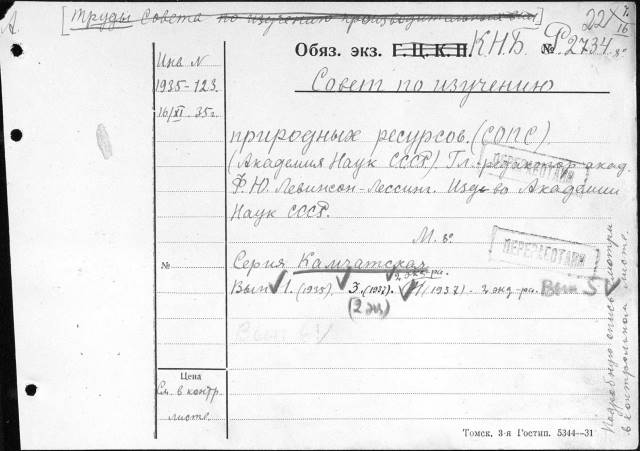 А.
[Труды Совета по изучению производительных сил]
22/X 16
Обяз. экз. Г.Ц.К.П. КНБ № Р2734
Инв N
1935-123
16/XI. 35г.
Совет по изучению
природных ресурсов. (СОПС).
(Академия Наук СССР) Гл. редактор акад.
Ф. Ю. Левинсон-Лессинг. Изд-во Академии
Наук СССР.
ПЕРЕРАБОТАН
М. 8°
ПЕРЕРАБОТАН
№ Серия Камчатская
2 экз-ра.
Вып 1. (1935). 3. (1937). (1937). 2 экз-ра. Вып 5
(2 экз)
Вып 6
Цена
См. в контр.
листе.
Подробную опись смотри
в контрольном листе.
Томск, 3-я Гостип. 5344—31